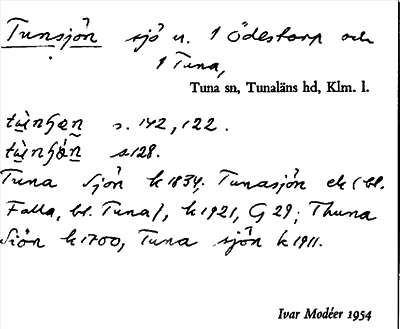 Tunsjön sjö n. 1 Ödestorp och
1 Tuna,
Tuna sn, Tunaläns hd, Klm. l.
s. 142, 122.
s. 128.
Tuna Sjön k 1834. Tunasjön ek (bl.
Falla, bl. Tuna), k 1921, G 29; Thuna
Siön k 1700, Tuna sjön k 1911.
Ivar Modéer 1954